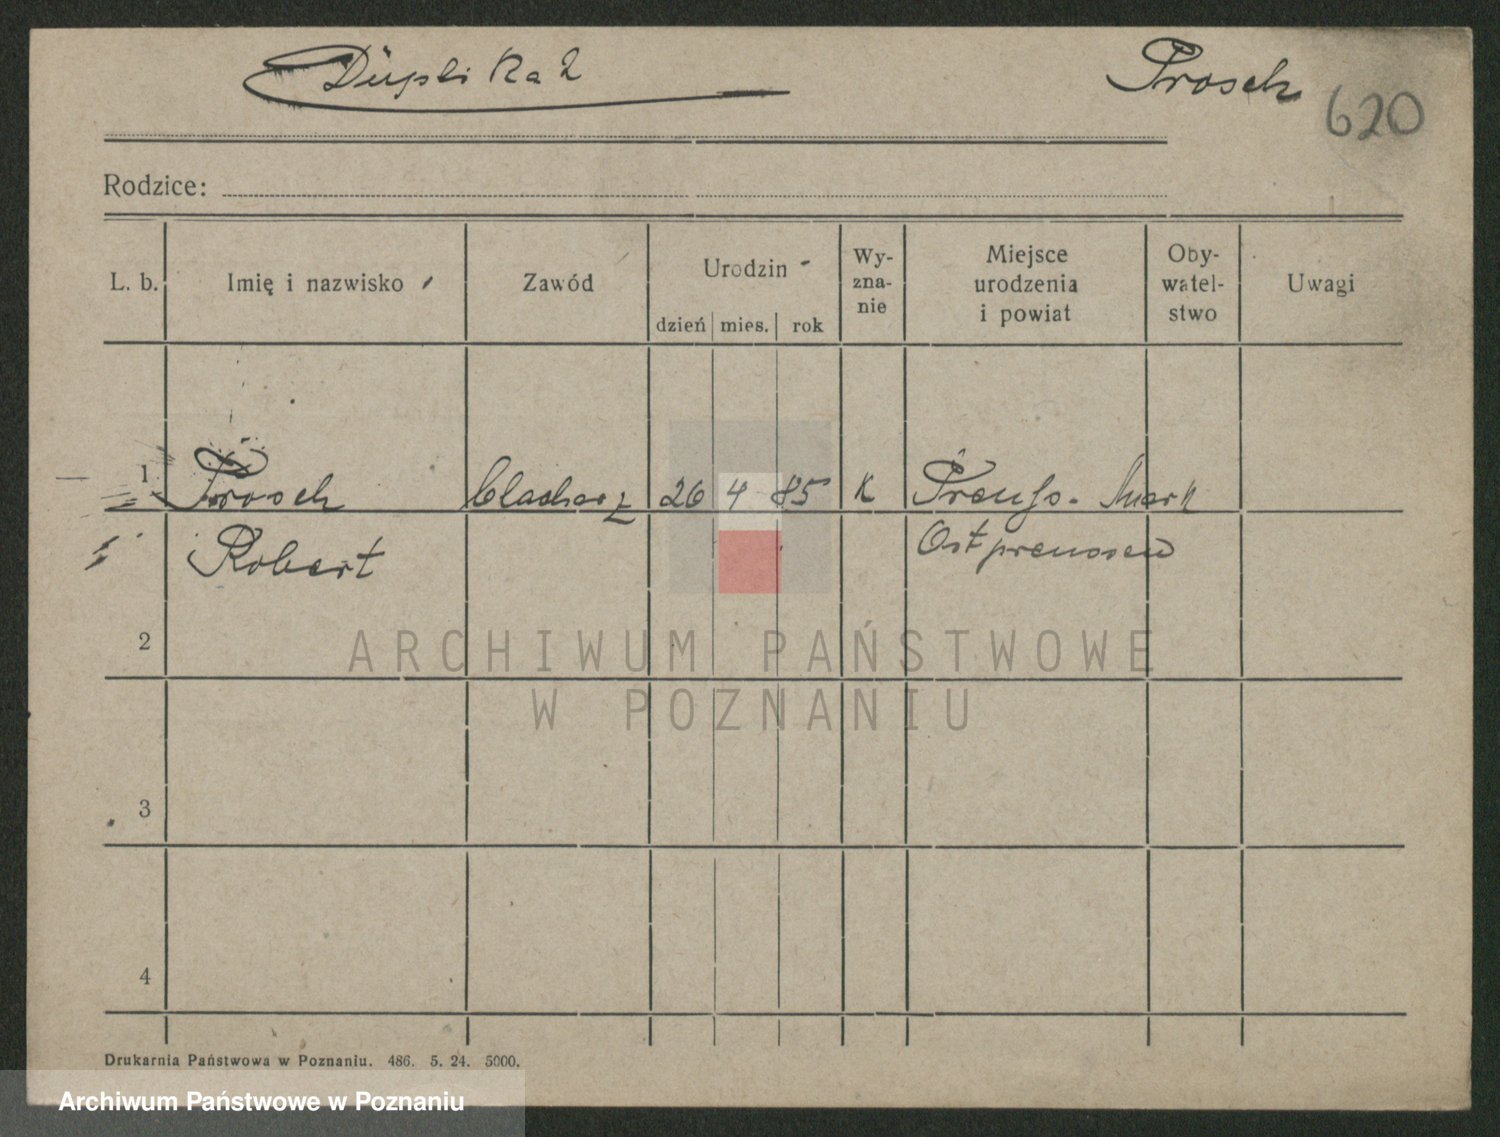 Duplikat
Prosch
620
Rodzice:
L. b.
Imię i nazwisko
Zawód
Urodzin
dzień mies. rok
Wy-
zna-
nie
Miejsce
urodzenia
i powiat
Oby-
watel-
stwo
Uwagi
1 Prosch 26 4 85 K Preuss. Mark
Robert Ostpreussen
2
3
4
Drukarnia Państwowa w Poznaniu. 486. 5. 24. 5000.
ARCHIWUM PAŃSTWOWE
W POZNANIU
Archiwum Państwowe w Poznaniu